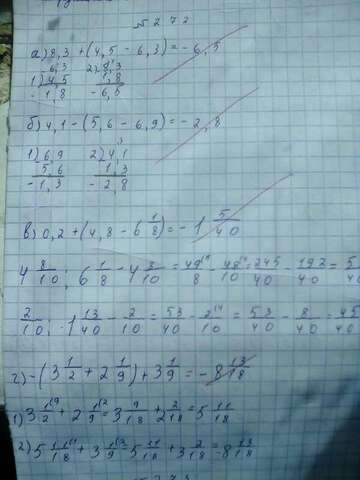 №272
а) 8,3 + (4,5 - 6,3) = - 6,5
1) 6,3 2) 8,3
4,5 1,8
- 1,8 - 6,5
б) 4,1 - (5,6 - 6,9) = - 2,8
1) 6,9 2) 4,1
5,6 1,3
- 1,3 - 2,8
в) 0,2 + (4,8 - 6 1/8) = - 1 5/40
4 8/10; 6 1/8 - 4 8/10 = 49/8 - 48/10 = 245/40 - 192/40 = 5
2/10; 1 13/40 - 2/10 = 53/40 - 2/10 = 53/40 - 8/40 = 45/40
г) - (3 1/2 + 2 1/9) + 3 1/9 = - 8 13/18
1) 3 1/2 + 2 1/9 = 3 9/18 + 2 2/18 = 5 11/18
2) 5 11/18 + 3 1/9 = 5 11/18 + 3 2/18 = - 8 13/18